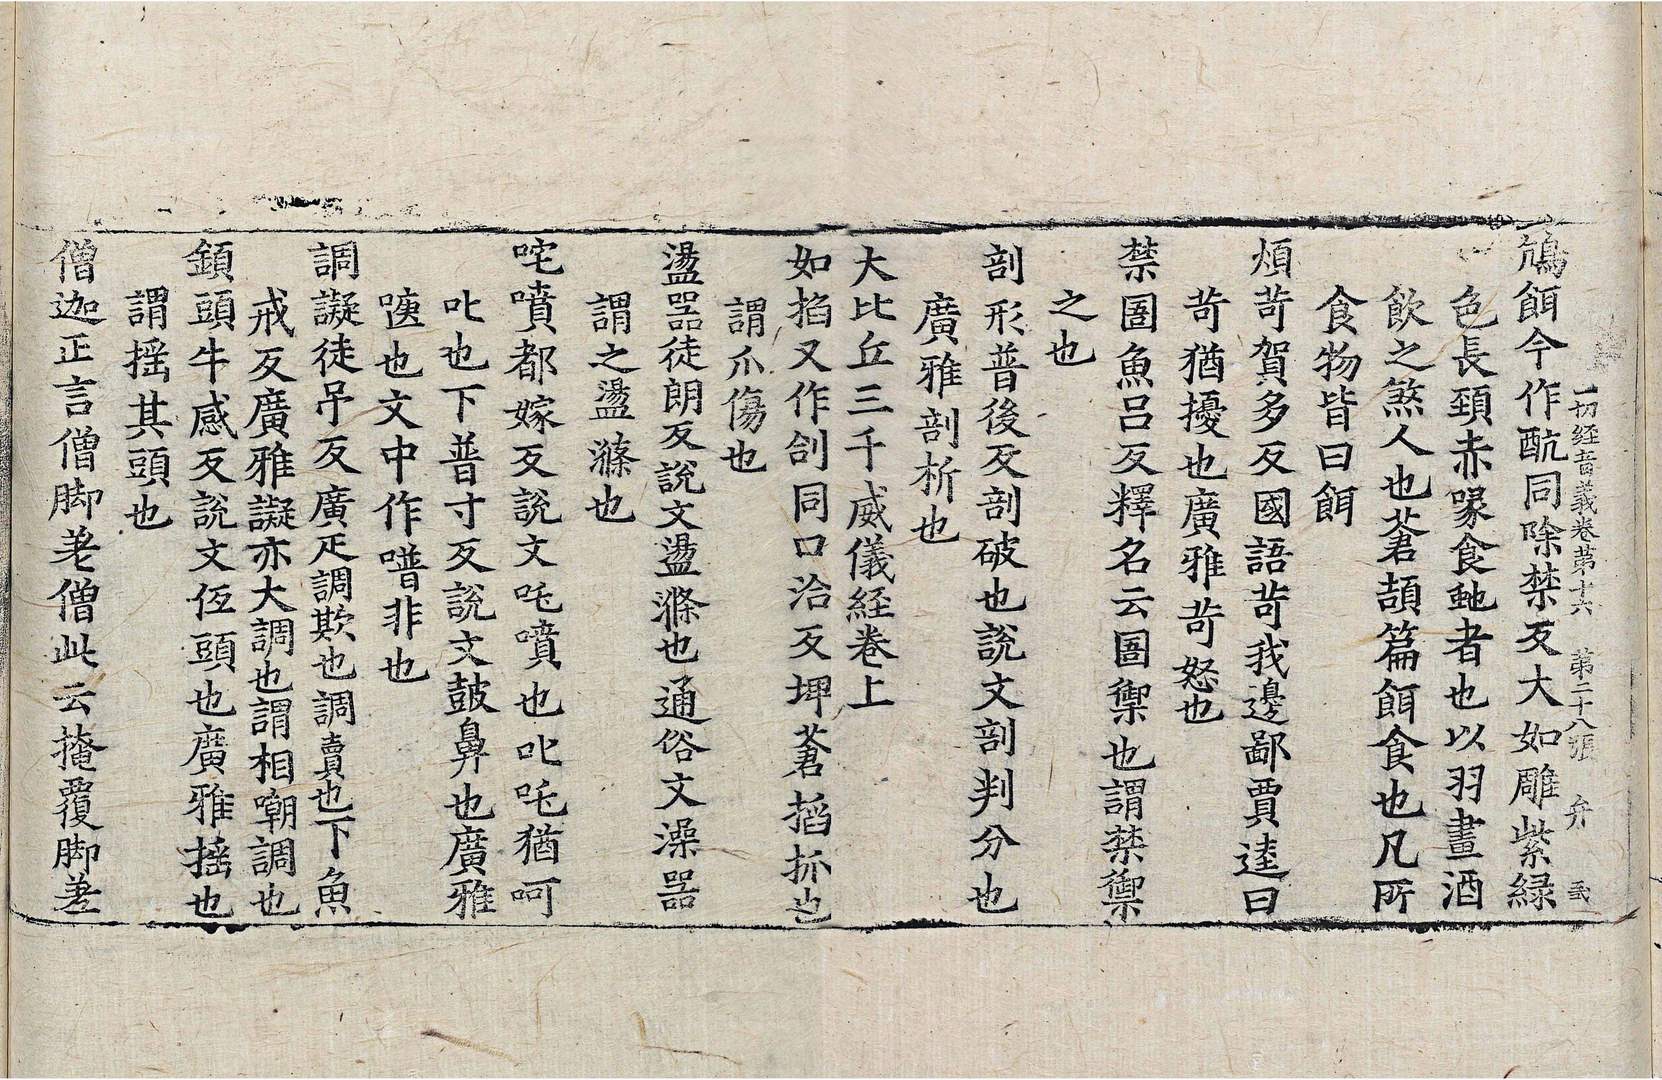 一切経音義卷第十六　第二十八張　弁　
鴆餌今作酖同除禁反大如雕紫緑
色長頸赤喙食虵者也以羽畫酒
飲之煞人也蒼頡篇餌食也凡所
食物皆曰餌
煩苛賀多反國語苛我邊鄙賈逵曰
苛猶擾也廣雅苛怒也
禁圄魚呂反釋名云圄禦也謂禁禦
之也
剖形普後反剖破也說文剖判分也
廣雅剖析也
大比丘三千威儀経卷上
如掐又作㓣同口洽反埤蒼掐抓也
謂爪傷也
盪器徒朗反說文盪滌也通俗文澡器
謂之盪滌也
咤噴都嫁反說文吒噴也叱吒猶呵
叱也下普寸反說文鼓鼻也廣雅
㗘也文中作噆非也
調譺徒吊反廣疋調欺也調賣也下魚
戒反廣雅譺亦大調也謂相嘲調也
顉頭牛感反說文仾頭也廣雅摇也
謂摇其頭也
僧迦正言僧脚差僧此云掩覆脚差